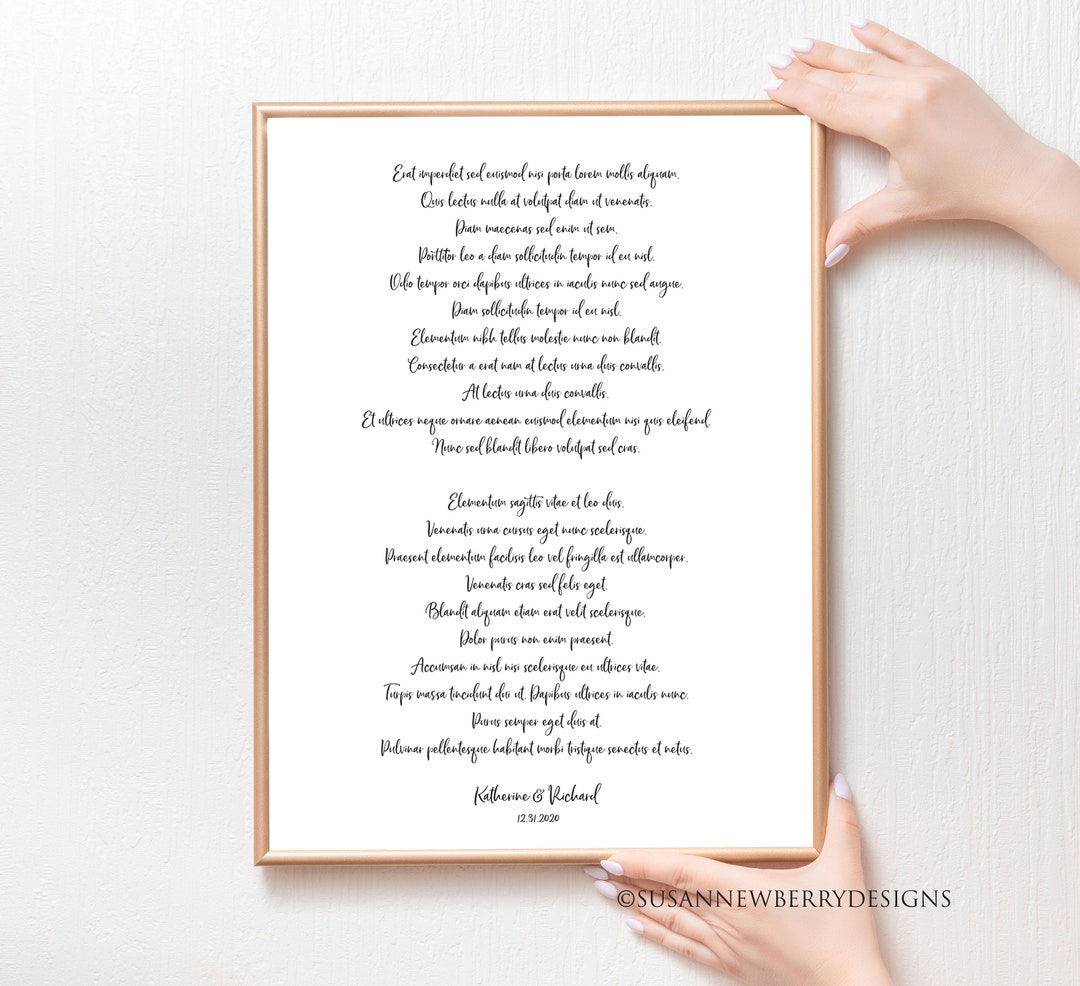 Erat imperdiet sed euismod nisi porta lorem mollis aliquam.
Quis lectus nulla at volutpat diam ut venenatis.
Diam maecenas sed enim ut sem.
Porttitor leo a diam sollicitudin tempor id eu nisl.
Odio tempor orci dapibus ultrices in iaculis nunc sed augue.
Diam sollicitudin tempor id eu nisl.
Elementum nibh tellus molestie nunc non blandit.
Consectetur a erat nam at lectus urna duis convallis.
At lectus urna duis convallis.
Et ultrices neque ornare aenean euismod elementum nisi quis eleifend.
Nunc sed blandit libero volutpat sed cras.
Elementum sagittis vitae et leo duis.
Venenatis urna cursus eget nunc scelerisque.
Praesent elementum facilisis leo vel fringilla est ullamcorper.
Venenatis cras sed felis eget.
Blandit aliquam etiam erat velit scelerisque.
Dolor purus non enim praesent.
Accumsan in nisl nisi scelerisque eu ultrices vitae.
Turpis massa tincidunt dui ut. Dapibus ultrices in iaculis nunc.
Purus semper eget duis at.
Pulvinar pellentesque habitant morbi tristique senectus et netus.
Katherine & Richard
12.31.2020
©SUSANNEWBERRYDESIGNS